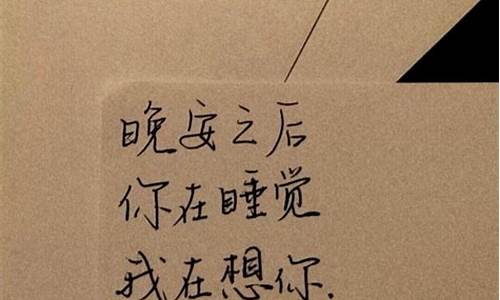 晚安之后
你在睡觉
我在想你.